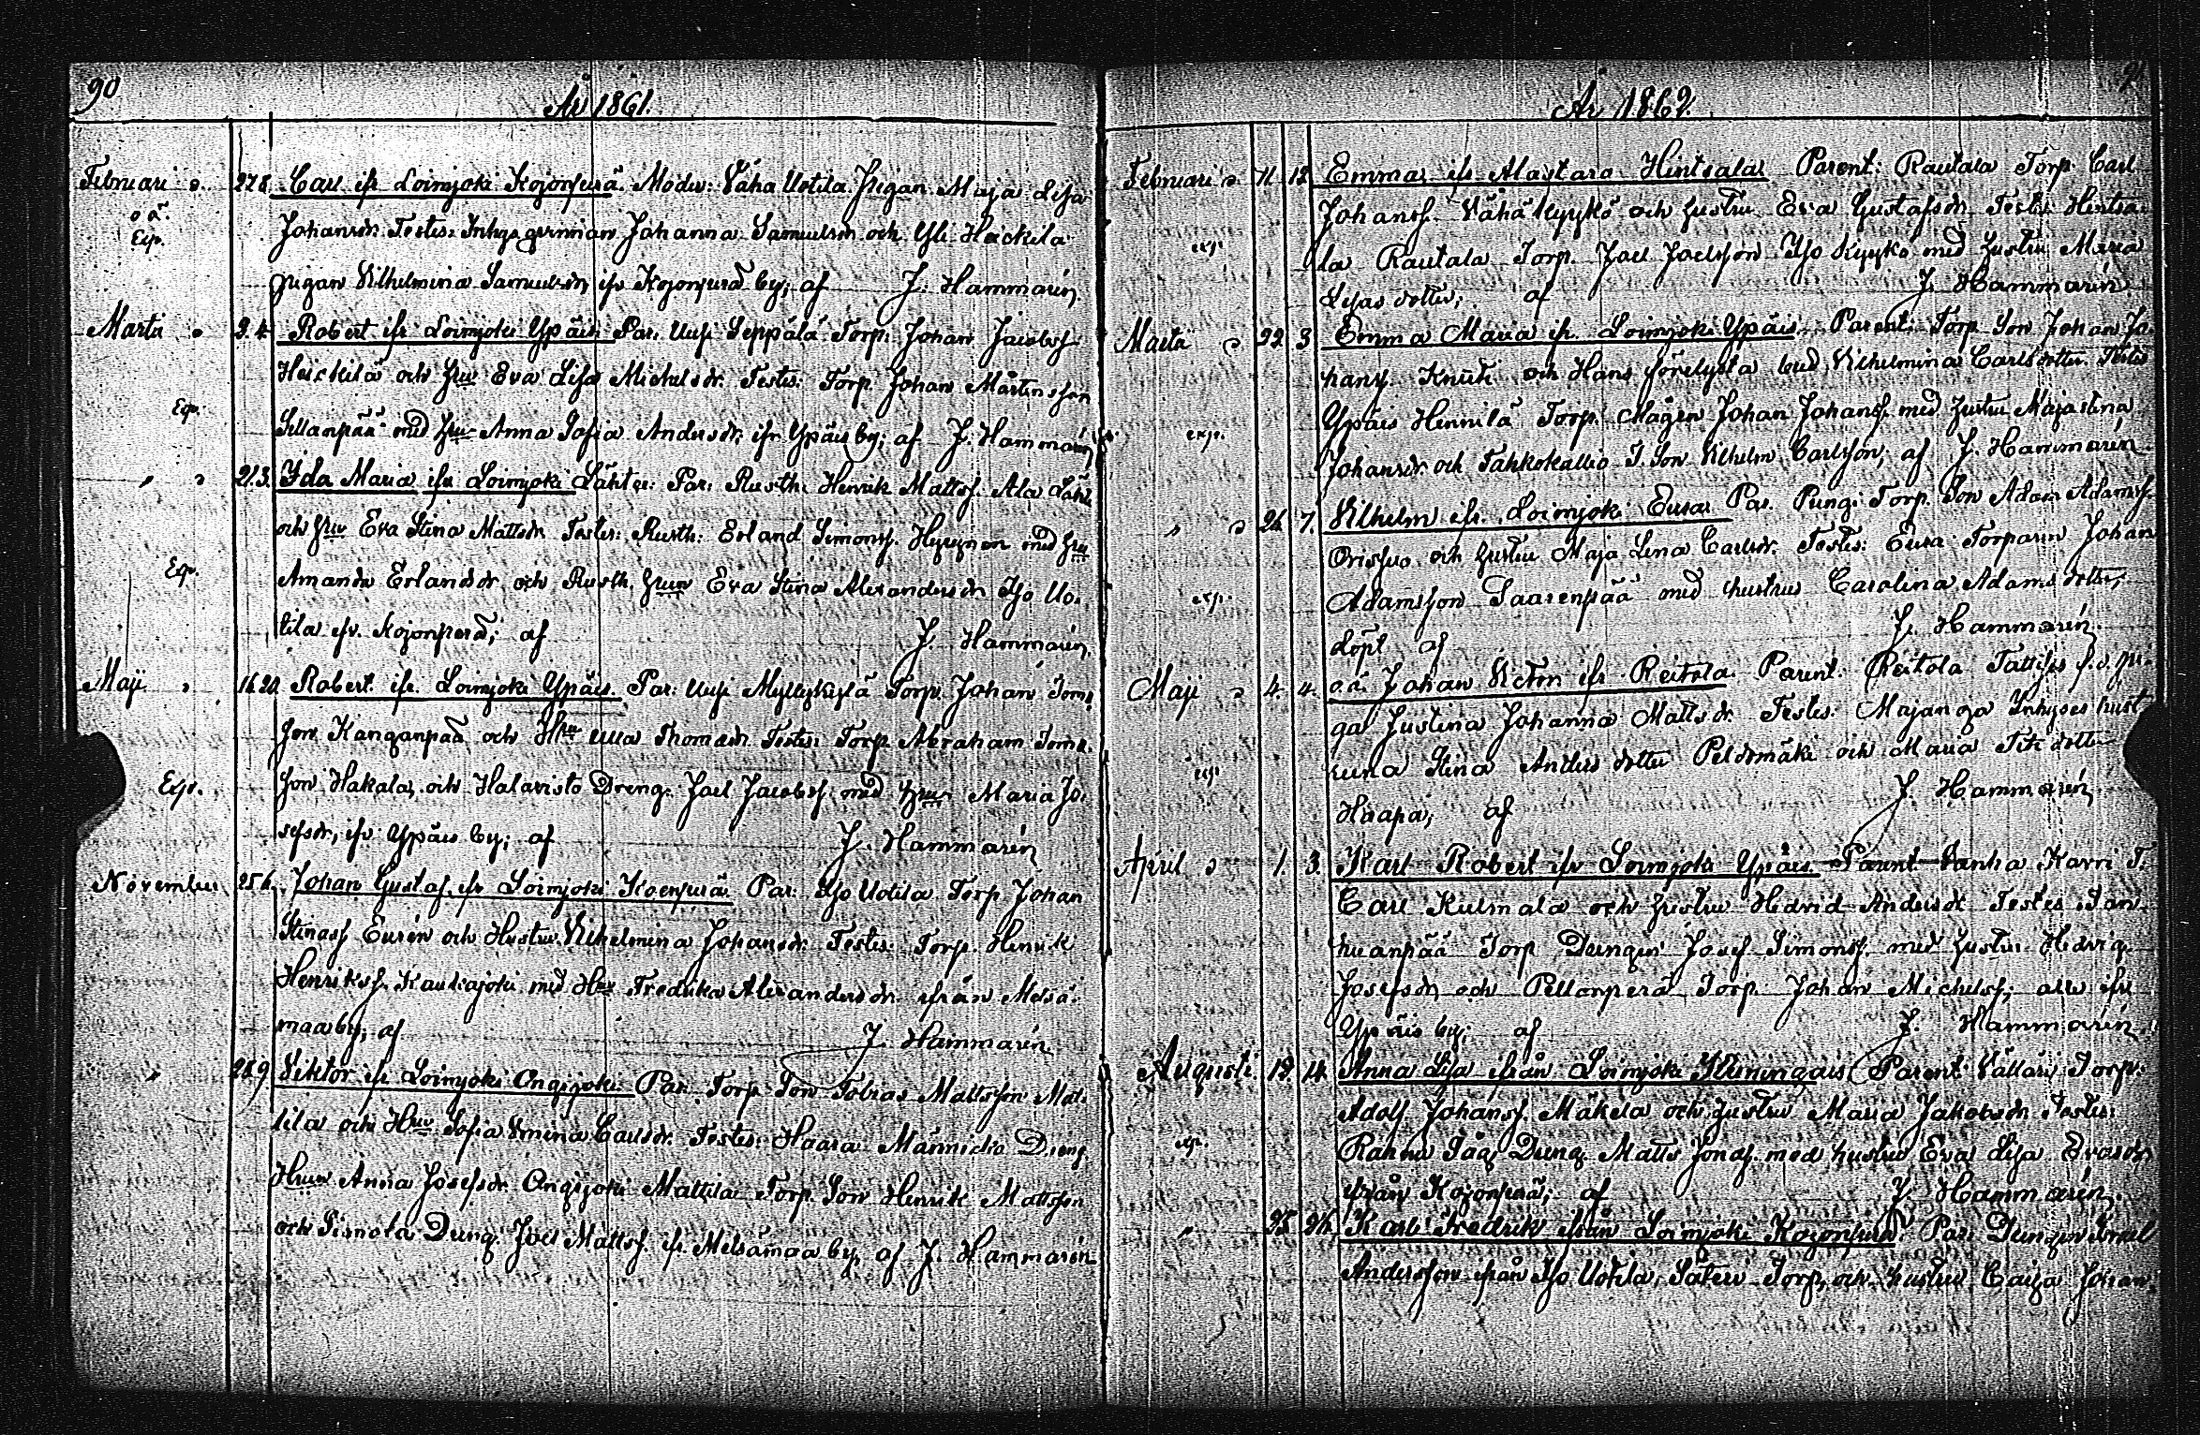 90
År 1861.
Februari 27 8. Carl ifr Loimjoki Kojonperä. Moder: Vähä Uotila Pigan Maja Lisa
o ä. Johansdr. Testes: Inhysqvinnan Johanna Samuelsdr och Yli Heickilä
Exp.
pigan Vilhelmina Samuelsdr ifr Kojonperä by; af J. Hammarén
Martii 3. 4. Robert ifr Loimjoki Ypäis. Par: Uusi Seppälä Torp. Johan Jacobss.
Heickilä och Hru Eva Lisa Michelsdr. Testes: Torp. Johan Mårtinsson
Exp. Sillanpää med Hru Anna Sofia Andersdr, ifr Ypäis by; af J. Hammarén
" 21 3. Ida Maria ifr Loimjoki Lähte: Par: Rusth: Henrik Mattss. Ala
och Hru Eva Stina Mattsdr Testes: Rusth: Erland Simonss. Hyrynen med Hru
Exp. Amanda Erlandsdr och Rusth. Hrun Eva Stina Alexandersdr Iso Uo-
tila ifr. Kojonperä; af J. Hammarén
Maji 16 20. Robert ifr Loimjoki Ypäis. Par: Uusi Myllykylä Torp. Johan Toms-
son Kanganpää och Hru Ulla Thomasdr Testes: Torp. Abraham Toms-
Exp. son Hakala, och Halavisto Dreng. Joel Jacobss. med Hru Maria Jo-
sefsdr, ifr Ypäis by; af J. Hammarén
November 25 6. Johan Gustaf ifr Loimjoki Koenperä Par: Iso Uotila Torp. Johan
Stinass Eurén och Hustru Vilhelmina Johansdr. Testes: Torp. Henrik
Henrikss. Kaukajoki med Hru Fredrika Alexandersdr ifrån Metsä-
maa by, af J. Hammarén
" 28 9. Viktor ifr Loimjoki Ongijoki Par: Torp. Son Tobias Mattsson Mat-
tila och Hru Sofia Vmina Carlsdr. Testes: Haara Männickö Dreng.
Hrun Anna Josefsdr Ongijoki Mattila Torp. Son Henrik Mattsson
och Simola Dreng. Joel Mattss. ifr Metsämaa by, af J. Hammarén
År 1862.
Februari 11 12. Emma, ifr Alastaro Hintsala Parent: Rautala Torp. Carl
Johanss. Vähä Kyykö och hustru Eva Gustafsdr Testes Hintsa-
exp. la Rautala Torp. Joel Joelsson Iso Kyykö med hustru Maria
Lisas dotter, af J. Hammarén
Martii 22 3. Emma Maria ifr. Loimjoki Ypäis. Parent: Torp. Son Johan Jo-
hanss. Knuti och Hans förelysta brud Vilhelmina Carlsdotter. Testes
exp. Ypäis Hennilä Torp. Mågen Johan Johanss. med hustru Majastina
Johansdr och Tahkokallio T. Son Vilhelm Carlsson, af J. Hammarén
" 24 7. Vilhelm ifr. Loimjoki Eura Par. Pungi Torp. Son Adam Adamss.
Orisuo och hustru Maja Lena Carlsdr. Testes: Eura Torparen Johan
exp. Adamsson Saarenpää med hustru Carolina Adamsdotter,
döpt af J. Hammarén
Maji 4. 4. o.ä. Johan Victor ifr Reitola Parent. Reitola
ga Justina Johanna Mattsdr. Testes: Inhyses hust-
exp. Stina Andersdotter Peldomäki och Maria
Haapa, af J. Hammarén
April 1. 3. Karl Robert ifr Loimjoki Ypäis Parent Vanha Karri T.
Carl Kulmala och hustru Hedvid Andersdr Testes Jan-
huanpää Torp Drengen Josef Simonss. med hustru Hedvig
Josefsdr och Pellonperä Torp. Johan Michelss; alla ifr
Ypäis by; af J. Hammarén
Augusti 12 14. Anna Lisa ifrån Loimjoki Kieningais Parent: Välläri Torp.
Adolf Johanss. Mäkelä och hustru Maria Jakobsdr Testes:
exp. Dreng. Matts Jonass. med hustru Eva Lisa
ifrån Kojonperä; af J. Hammarén
" 25 26. Karl Fredrik ifrån Loimjoki Kojonperä. Par: Drengen Israel
Andersson ifrån Iso Uotila, Säteri Torp, och hustru Caisa Johan-